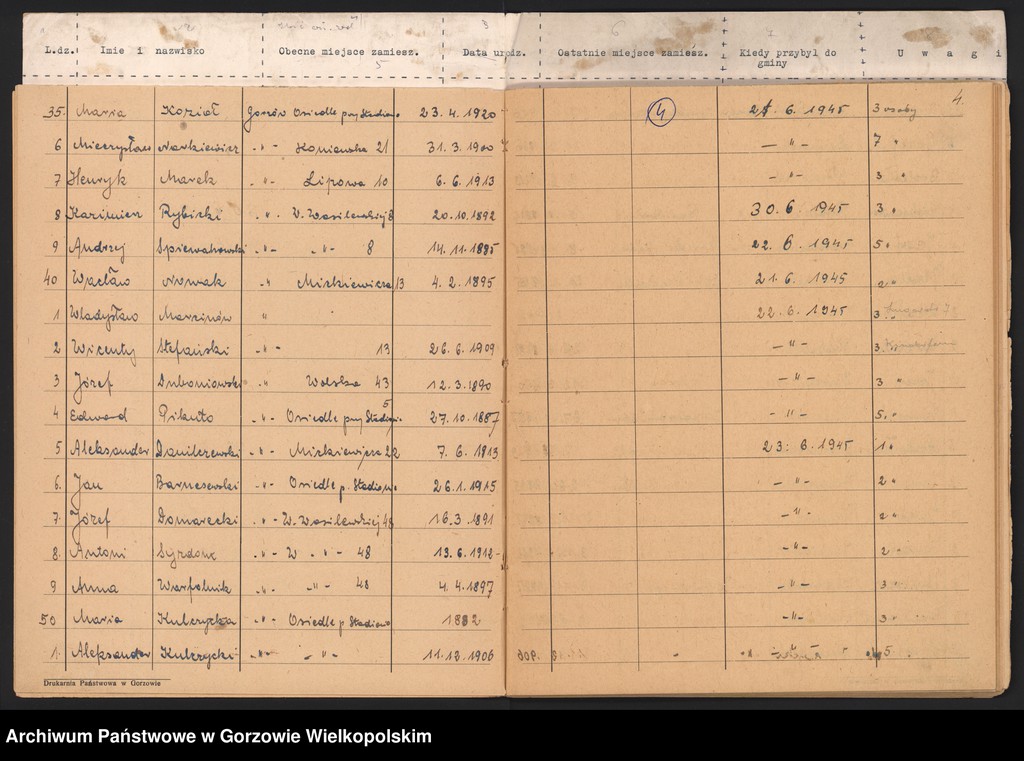 L.dz. Imie i nazwisko Obecne miejsce zamiesz. Data urodz. Ostatnie miejsce zamiesz. Kiedy przybył do gminy U w a g i
4.
35. Maria Kozioł Gorzów Osiedle przy Stadionie 23.4.1920 4 21.6.1945 3 osoby
6 Mieczysław Narkiewicz -"- Koniawska 21 31.3.1900 -"- 7 "
7 Henryk Marek -"- Lipowa 10 6.6.1913 -"- 3 "
8 Kazimierz Rybicki -"- W. Wasilewskiej 8 20.10.1892 30.6.1945 3 "
9 Andrzej Śpiewakowski -"- -"- 8 14.11.1895 22.6.1945 5 "
40 Wacław Nowak -" Mickiewicza 13 4.2.1895 21.6.1945 2 "
1 Władysław Marcinów " 22.6.1945 3 "
2 Wicenty Stefański -"- 13 26.6.1909 -"- 3 "
3 Józef Duboniowski -"- Wolska 43 12.3.1890 -"- 3 "
4 Edward Pikuto -"- Osiedle przy Stadionie 5 27.10.1887 -"- 5 "
5 Aleksander Danilczewski -"- Mickiewicza 22 7.6.1913 23.6.1945 1 "
6. Jan Barnesewski -"- Osiedle p. Stadionie 26.1.1915 -"- 2 "
7. Józef Domarecki -"- W. Wasilewskiej 48 16.3.1891 -"- 2 "
8. Antoni -"- W -"- 48 13.6.1912 -"- 2 "
9 Anna Warfolnik -"- -"- 48 4.4.1897 -"- 3 "
50 Maria Kulczycka -"- Osiedle p Stadionie 1882 -"- 3 "
1. Aleksander Kulczycki -"- -"- 11.12.1906 5
Drukarnia Państwowa w Gorzowie
Archiwum Państwowe w Gorzowie Wielkopolskim